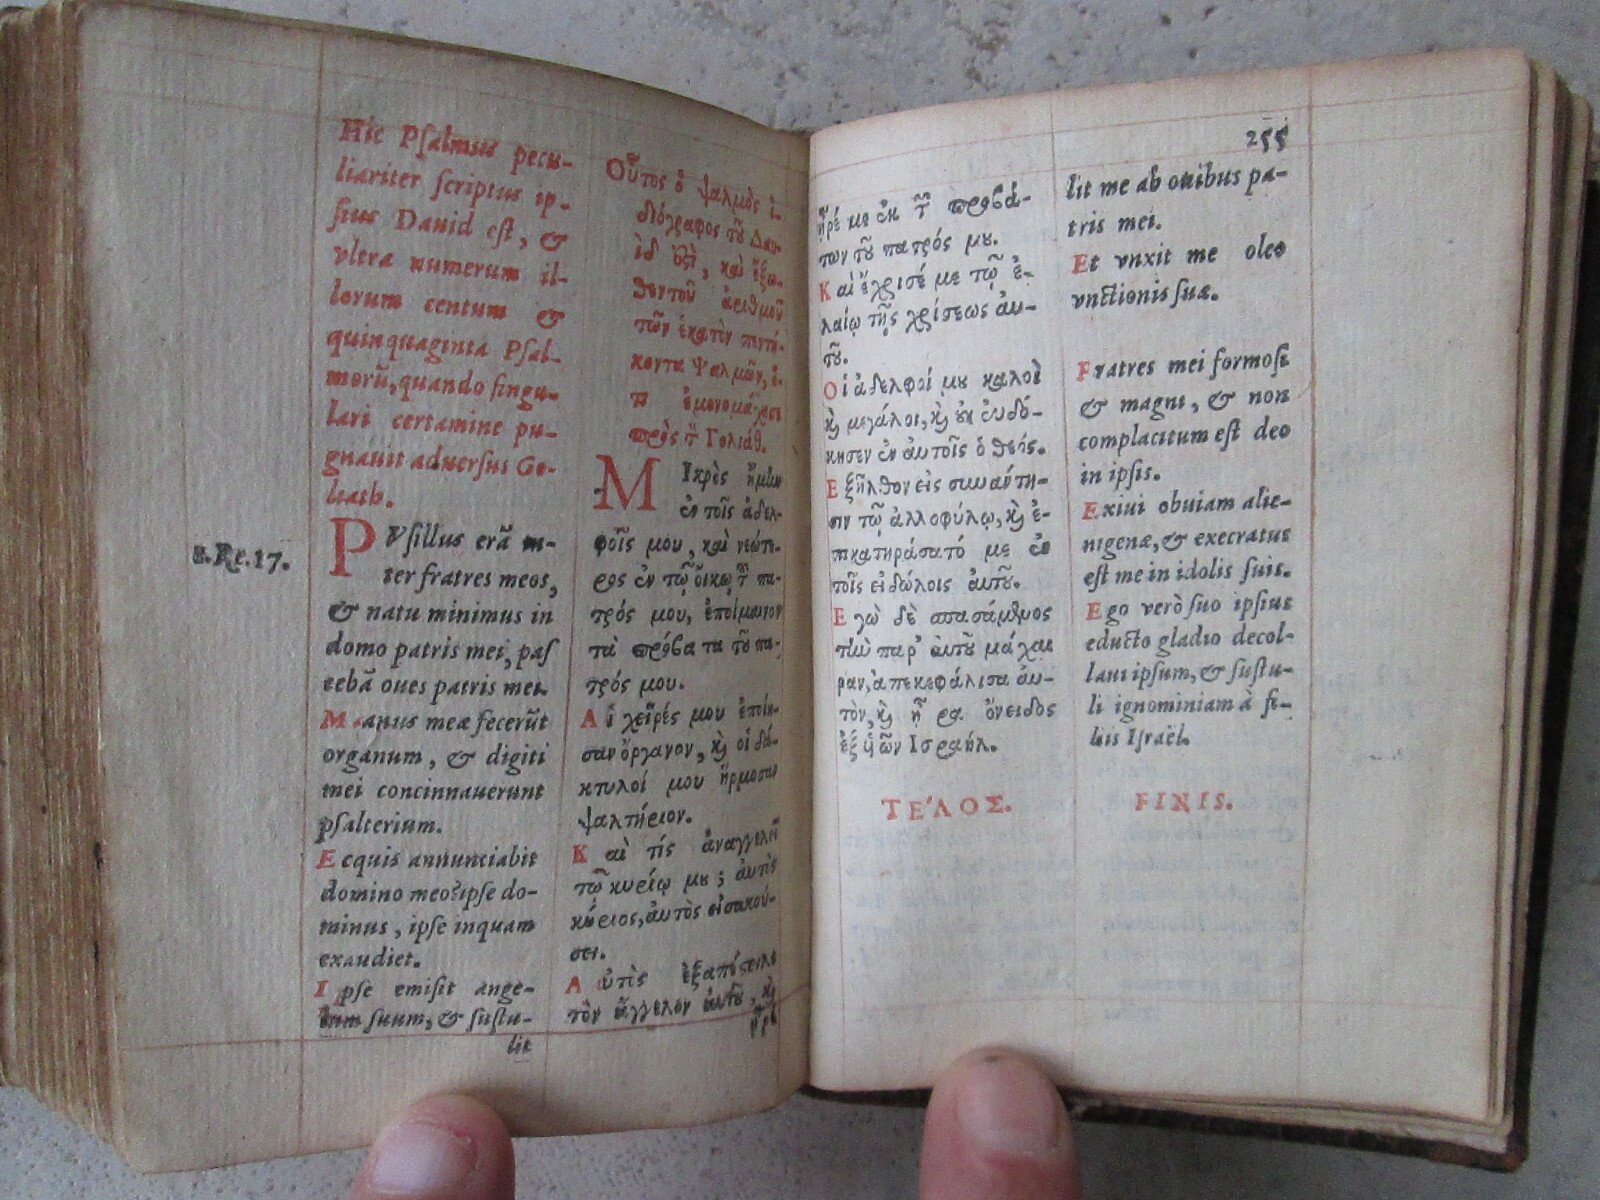 Hic Pſalmus pecu-
liariter ſcriptus ip-
ſius Dauid eſt, &
vltra numerum il-
lorum centum &
quinquaginta Pſal-
morū, quando ſingu-
lari certamine pu-
gnauit aduerſus Go-
liath.
PVſillus erā in-
ter fratres meos,
& natu minimus in
domo patris mei, paſ
cebā oues patris mei.
Manus meæ fecerūt
organum, & digiti
mei concinnauerunt
pſalterium.
Ecquis annunciabit
domino meo? ipſe do-
minus, ipſe inquam
exaudiet.
Ipſe emiſit ange-
lum ſuum, & ſuſtu-
lit
.Re.17.
Οὗτος ὁ ψαλμὸς ἰ-
διόγραφος τοῦ Δαυ-
ὶδ ὅξι, καὶ ἔξω-
θεν τοῦ ἀριθμοῦ
τῶν ἑκατὸν πεντή-
κοντα Ψαλμῶν, ὅ-
τε ἐμονομάχησε
πρὸς τὸν Γολιάθ.
ΜΙκρὸς ἤμην
ἐν τοῖς ἀδελ-
φοῖς μου, καὶ νεώτε-
ρος ἐν τῷ οἴκῳ τοῦ πα-
τρός μου, ἐποίμαινον
τὰ πρόβατα τοῦ πα-
τρός μου.
Αἱ χεῖρές μου ἐποίη-
σαν ὄργανον, καὶ οἱ δά-
κτυλοί μου ἥρμοσαν
ψαλτήριον.
Καὶ τίς ἀναγγελεῖ
τῷ κυρίῳ μου; αὐτὸς
κύριος, αὐτὸς εἰσακού-
σει.
Αὐτὸς ἐξαπέστειλε
τὸν ἄγγελον αὐτοῦ, καὶ
ἦρέ
255
ἦρέ με ἐκ τῶν προβά-
των τοῦ πατρός μου.
Καὶ ἔχρισέ με τῷ ἐ-
λαίῳ τῆς χρίσεως αὐ-
τοῦ.
Οἱ ἀδελφοί μου καλοὶ
καὶ μεγάλοι, καὶ οὐκ εὐδό-
κησεν ἐν αὐτοῖς ὁ θεός.
Ἐξῆλθον εἰς συνάντη-
σιν τῷ ἀλλοφύλῳ, καὶ ἐ-
πικατηράσατό με ἐν
τοῖς εἰδώλοις αὐτοῦ.
Ἐγὼ δὲ σπασάμενος
τὴν παρ' αὐτοῦ μάχαι
ραν, ἀπεκεφάλισα αὐ-
τὸν, καὶ ἦρα ὄνειδος
ἐξ υἱῶν Ἰσραήλ.
ΤΕΛΟΣ.
lit me ab ouibus pa-
tris mei.
Et vnxit me oleo
vnctionis ſuæ.
Fratres mei formoſi
& magni, & non
complacitum eſt deo
in ipſis.
Exiui obuiam alie-
nigenæ, & execratus
eſt me in idolis ſuis.
Ego verò ſuo ipſius
educto gladio decol-
laui ipſum, & ſuſtu-
li ignominiam à fi-
liis Iſraël.
FINIS.